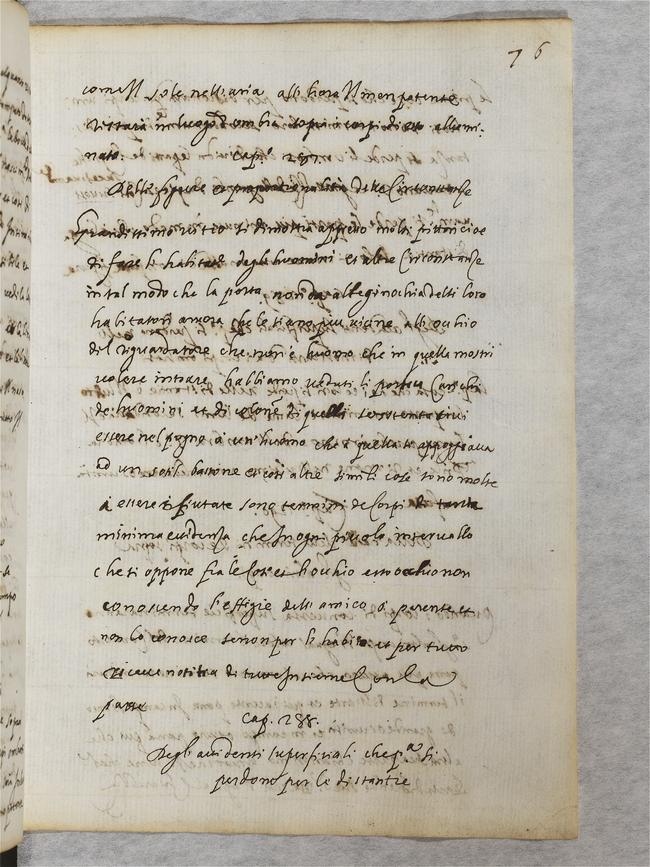 76
come Il sole nell'aria alli hore Il men potente
ristara in luogo d'ombra sopra i corpi di esso allumi:
nato. Cap.° 287.
Delle figure et proportionalita delle Circonstanze
Grandissimo vitio si dimostra appresso molti pittori cioe
di fare le habitati degli huomini et altre Circonstanze
in tal modo che la porta, non da alle ginochia delli loro
habitatori ancora che le siano piu vicine all'ochio
del riguardatore che non è huomo che in quelle mostri
volere intrare habbiamo veduti li portici Carichi
de huomini et di colone di quelli sostentatrici
essere nel pugno à un'huomo che à quella si appoggiaua
ad un sotil bastone et cosi altre simili cose sono molte
à essere rifiutate sono termini de Corpi di tanta
minima euidenza che In ogni piccolo interuallo
che si oppone fra le Cose et l'ochio esso ochio non
conosciendo l'effigie dell'amico ò parente et
non lo conosce senon per l'habito et per tutto
riceue notitia di tutto Insieme Con la
parte
Cap. 288.
Degli accidenti superfitiali che p.a si
perdono per le distantie